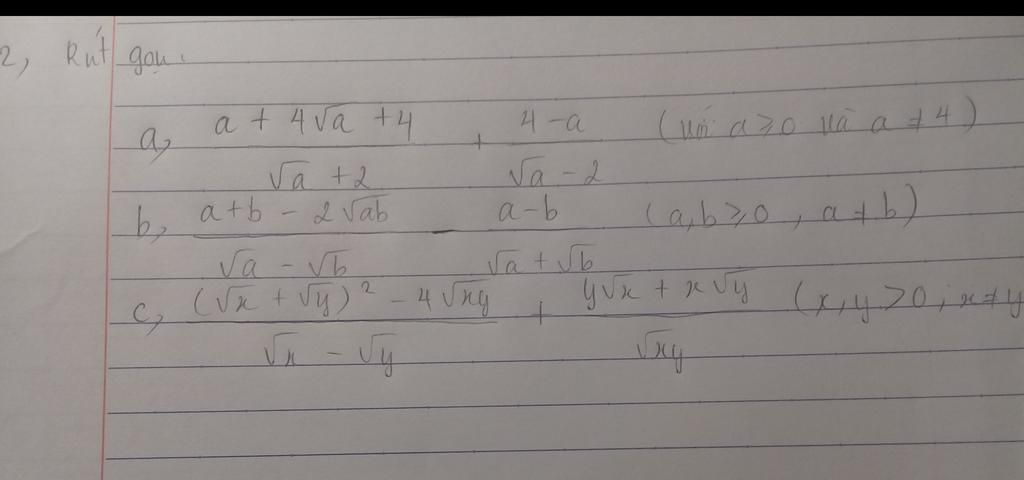 2, Rút gọn.
a, (a + 4√a + 4)/(√a + 2) + (4 - a)/(√a - 2) (với a ≥ 0 và a ≠ 4)
b, (a + b - 2√ab)/(√a - √b) - (a - b)/(√a + √b) (a, b ≥ 0, a ≠ b)
c, ((√x + √y)² - 4√xy)/(√x - √y) + (y√x + x√y)/(√xy) (x, y > 0; x ≠ y